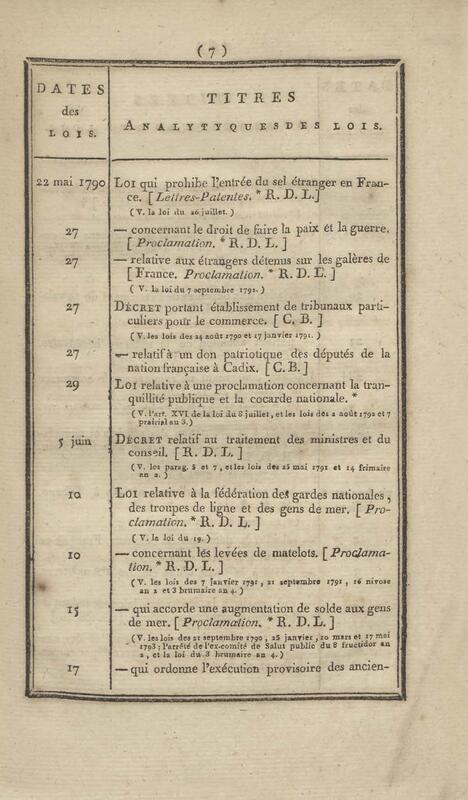 ( 7 )
DATES
des
LOIS.
TITRES
ANALYTYQUES DES LOIS.
22 mai 1790 LOI qui prohibe l'entrée du sel étranger en Fran-
ce. [ Lettres-Patentes. * R. D. L.]
( V. la loi du 26 juillet. )
27 — concernant le droit de faire la paix et la guerre.
[ Proclamation. * R. D. L. ]
27 — relative aux étrangers détenus sur les galères de
[ France. Proclamation. * R. D. L. ]
( V. la loi du 7 septembre 1792. )
27 DÉCRET portant établissement de tribunaux parti-
culiers pour le commerce. [ C. B. ]
( V. les lois des 24 août 1790 et 17 janvier 1791. )
27 — relatif à un don patriotique des députés de la
nation française à Cadix. [ C. B. ]
29 LOI relative à une proclamation concernant la tran-
quillité publique et la cocarde nationale. *
( V. l'art. XVI de la loi du 8 juillet, et les lois des 2 août 1792 et 7
prairial an 3. )
5 juin DÉCRET relatif au traitement des ministres et du
conseil. [ R. D. L. ]
( V. les parag. 5 et 7, et les lois des 25 mai 1791 et 14 frimaire
an 2. )
10 LOI relative à la fédération des gardes nationales,
des troupes de ligne et des gens de mer. [ Pro-
clamation. * R. D. L. ]
( V. la loi du 19. )
10 — concernant les levées de matelots. [ Proclama-
tion. * R. D. L. ]
( V. les lois des 7 janvier 1791, 21 septembre 1791, 16 nivose
an 2 et 3 brumaire an 4. )
15 — qui accorde une augmentation de solde aux gens
de mer. [ Proclamation. * R. D. L. ]
( V. les lois des 21 septembre 1790, 25 janvier, 10 mars et 17 mai
1793; l'arrêté de l'ex-comité de Salut public du 8 fructidor an
2, et la loi du 3 brumaire an 4. )
17 — qui ordonne l'exécution provisoire des ancien-